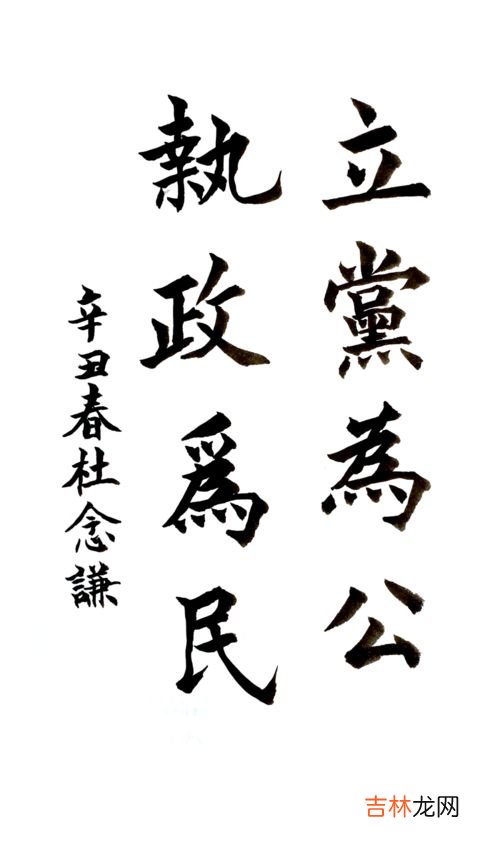 立黨為公
執政爲民
辛丑春杜念謙
吉林龙网